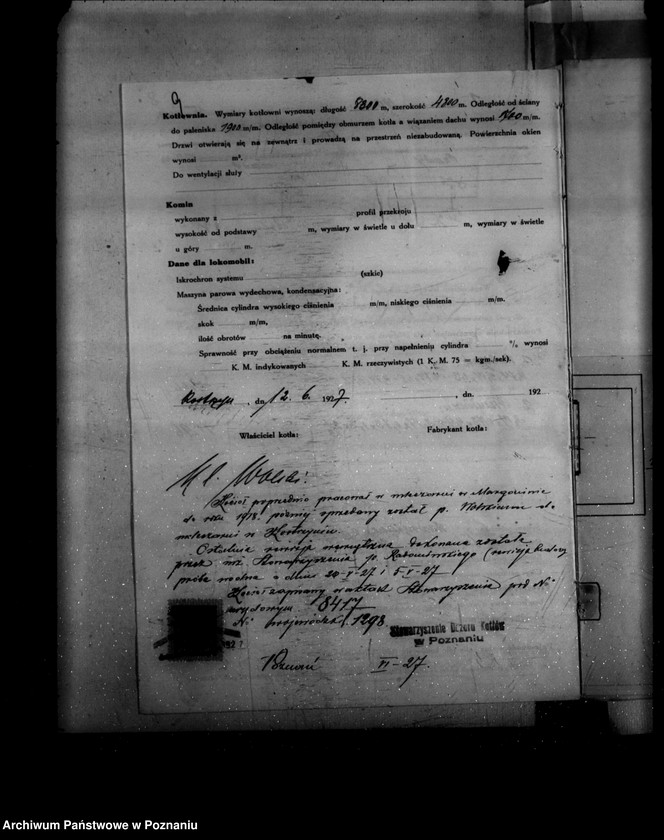 9
Kotłownia. Wymiary kotłowni wynoszą: długość 8300 m, szerokość 4200 m. Odległość od ściany
do paleniska 1900 m/m. Odległość pomiędzy obmurzem kotła a wiązaniem dachu wynosi m/m.
Drzwi otwierają się na zewnątrz i prowadzą na przestrzeń niezabudowaną. Powierzchnia okien
wynosi m².
Do wentylacji służy
Komin
wykonany z profil przekroju
wysokość od podstawy m, wymiary w świetle u dołu m, wymiary w świetle
u góry m.
Dane dla lokomobil:
Iskrochron systemu (szkic)
Maszyna parowa wydechowa, kondensacyjna:
Średnica cylindra wysokiego ciśnienia m/m, niskiego ciśnienia m/m.
skok m/m,
ilość obrotów na minutę.
Sprawność przy obciążeniu normalnem t. j. przy napełnieniu cylindra % wynosi
K. M. indykowanych K. M. rzeczywistych (1 K. M. 75 = kgm./sek).
Kostrzyn, dn. 12. 6. 1927. , dn. 192
Właściciel kotła: Fabrykant kotła:
Wolski
Kocioł poprzednio pracował w mleczarni w Margoninie
do roku 1918. później sprzedany został p. do
mleczarni w Kostrzynie.
Ostatnia rewizja wewnętrzna dokonana została
przez inż. Stowarzyszenia p. Radomińskiego (rewizja
próba wodna) dnia 20-V-27 i 5-V-27
Kocioł zapisany w aktach Stowarzyszenia pod №
8417
№ 1298
Stowarzyszenie Dozoru Kotłów
w Poznaniu
192
Poznań VI-27.
Archiwum Państwowe w Poznaniu